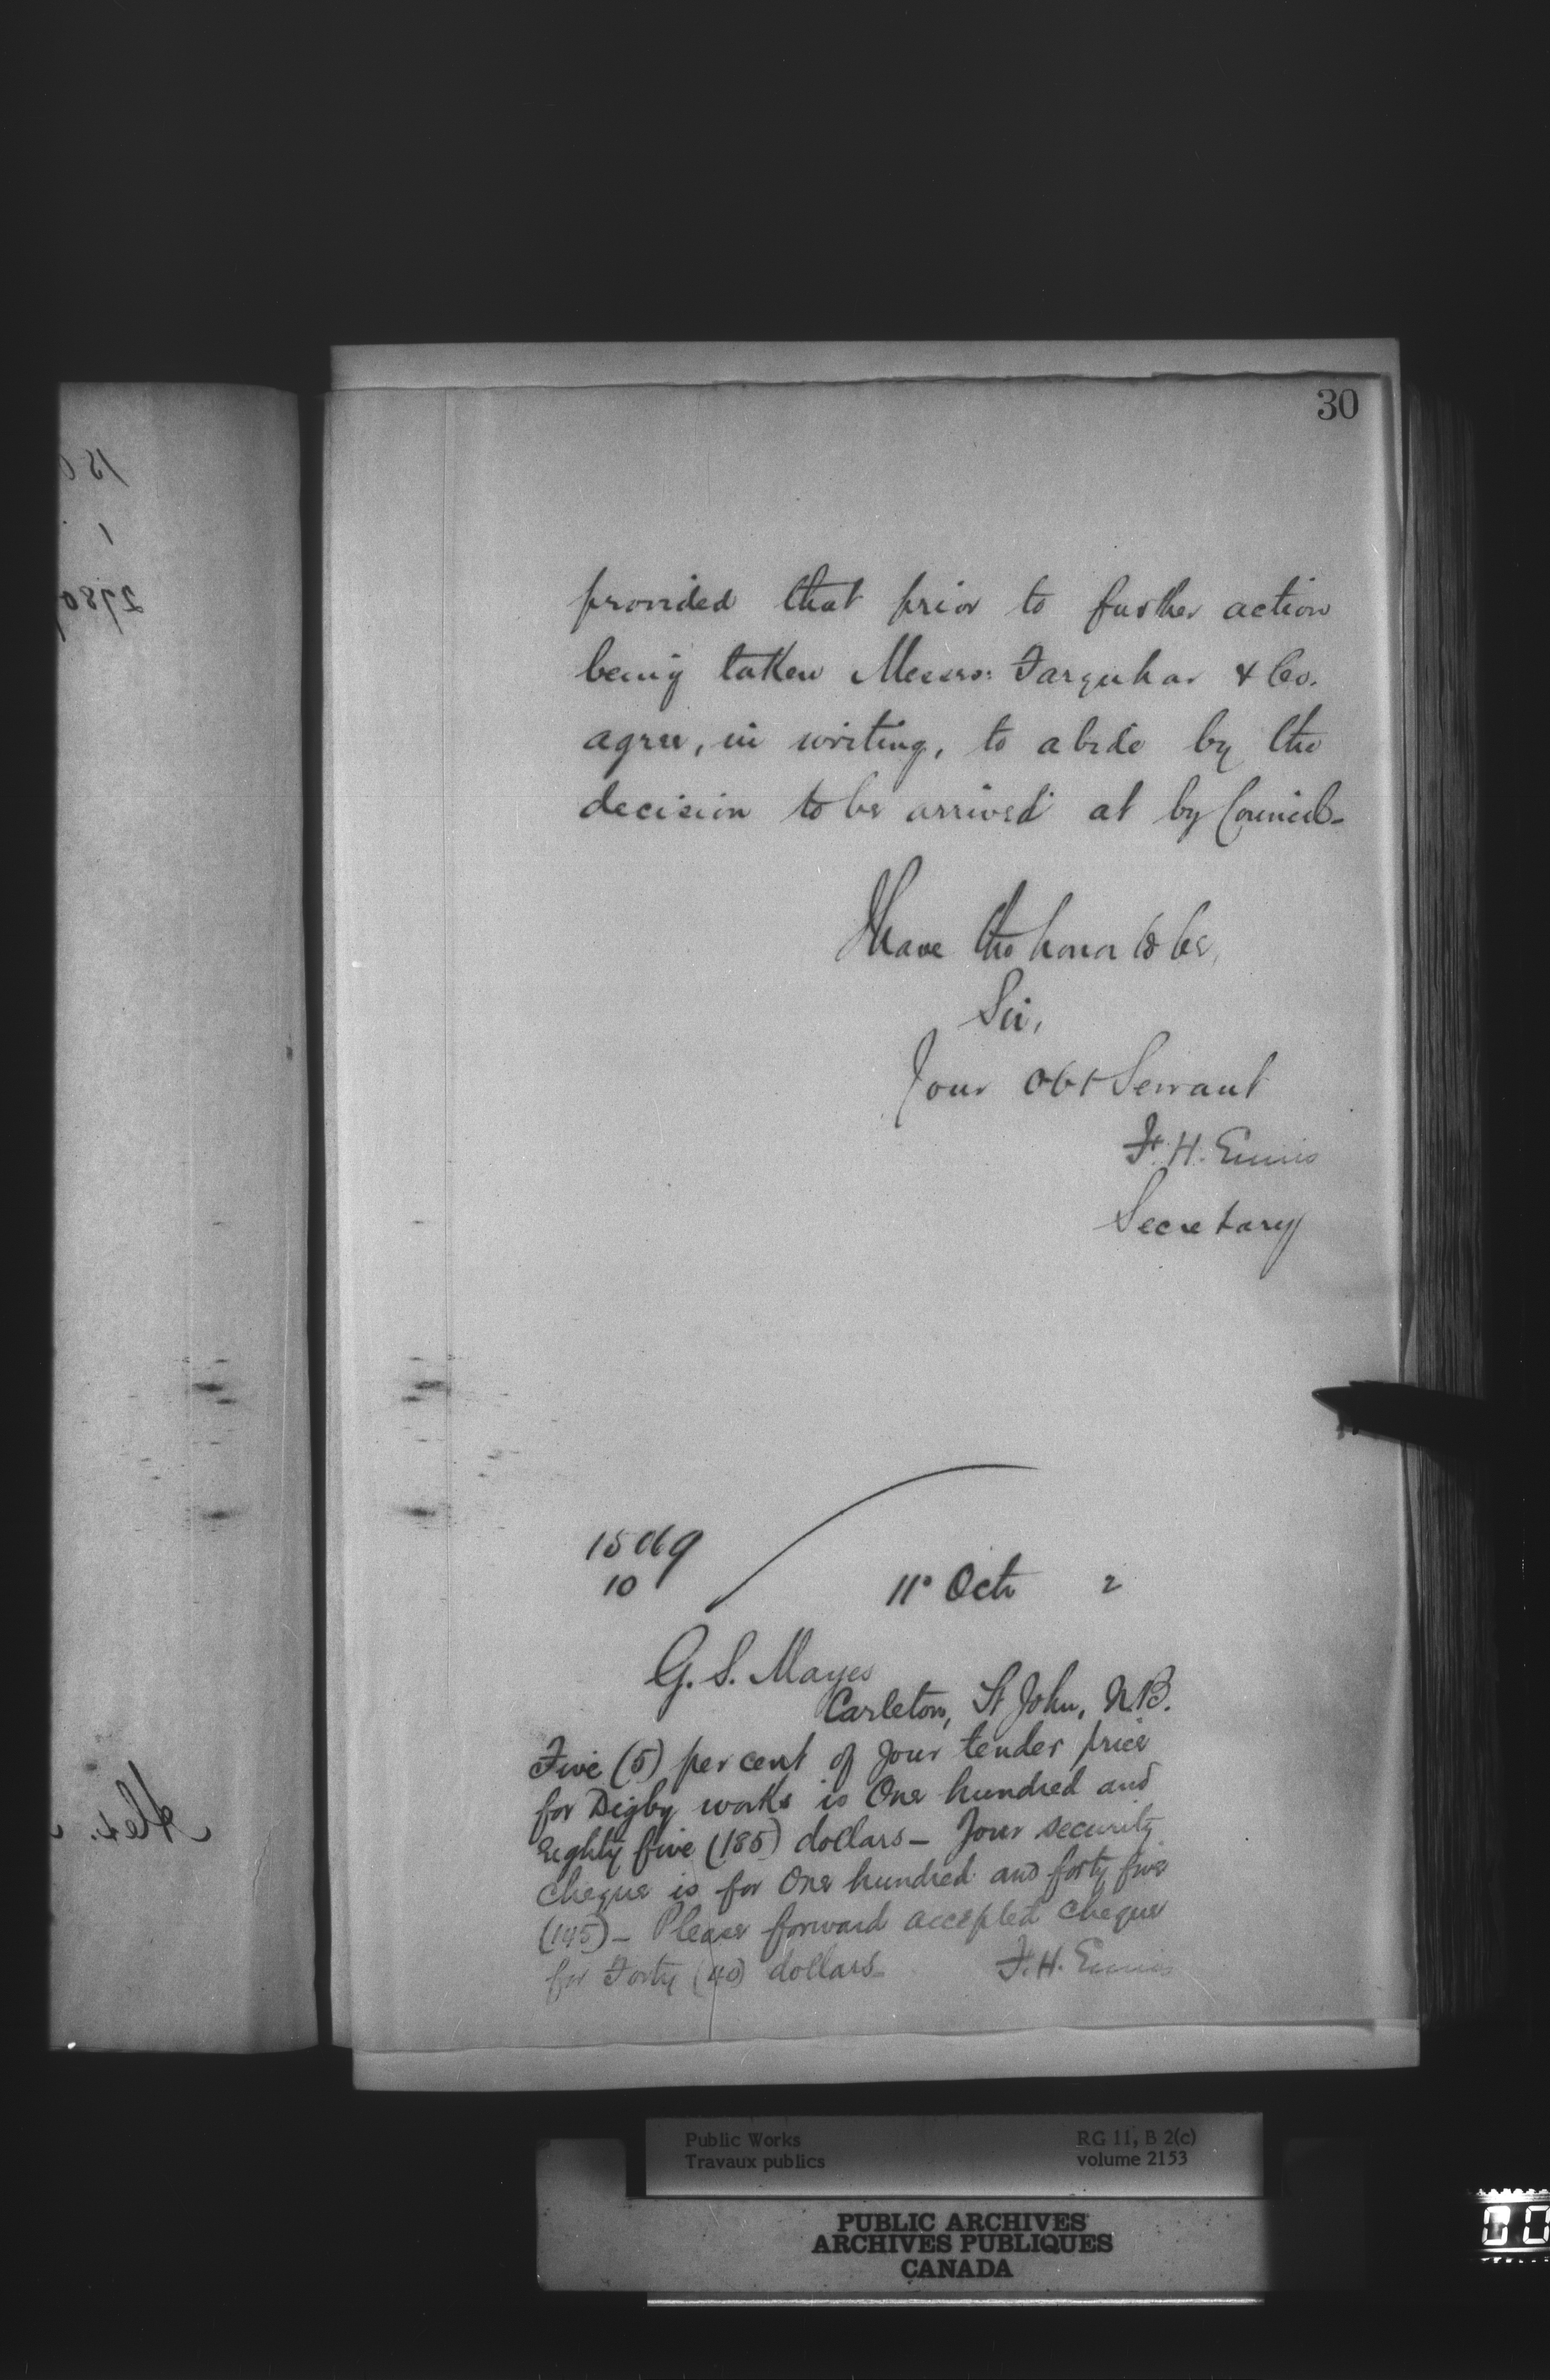 30
provided that prior to further action
being taken Messrs: Farquhar & Co.
agree, in writing, to abide by the
decision to be arrived at by Council-
I have the honor to be,
Sir,
Your obt Servant
F. H. Ennis
Secretary
10
11° Octr 2
G. S. Mayes
Carleton, St John, N.B.
Five (5) per cent of your tender price
for Digby works is One hundred and
Eighty five (185) dollars - Your security
cheque is for One hundred and forty five
(145) - Please forward accepted cheque
for Forty (40) dollars -
F. H. Ennis
Public Works
Travaux publics
RG 11, B 2(c)
volume 2153
PUBLIC ARCHIVES
ARCHIVES PUBLIQUES
CANADA